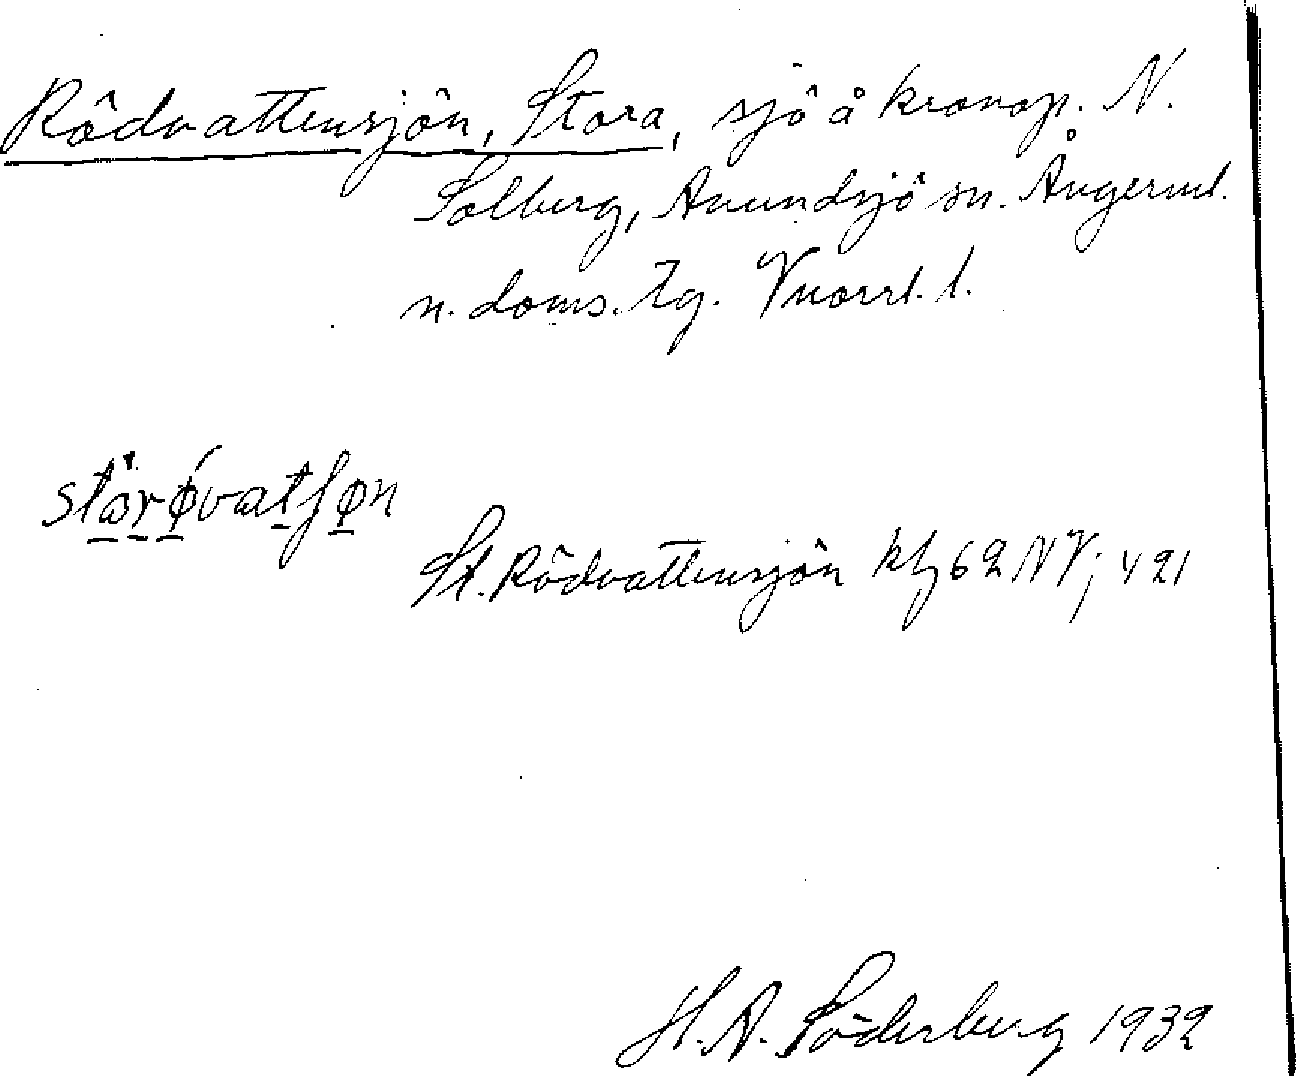 Rödvattensjön, Stora, sjö å kronop. N.
Solberg, Anundsjö sn. Ångerml.
n. doms. tg. Vnorrl. l.
St. Rödvattensjön kbg 62 NV; 421
H. A. Söderberg 1932